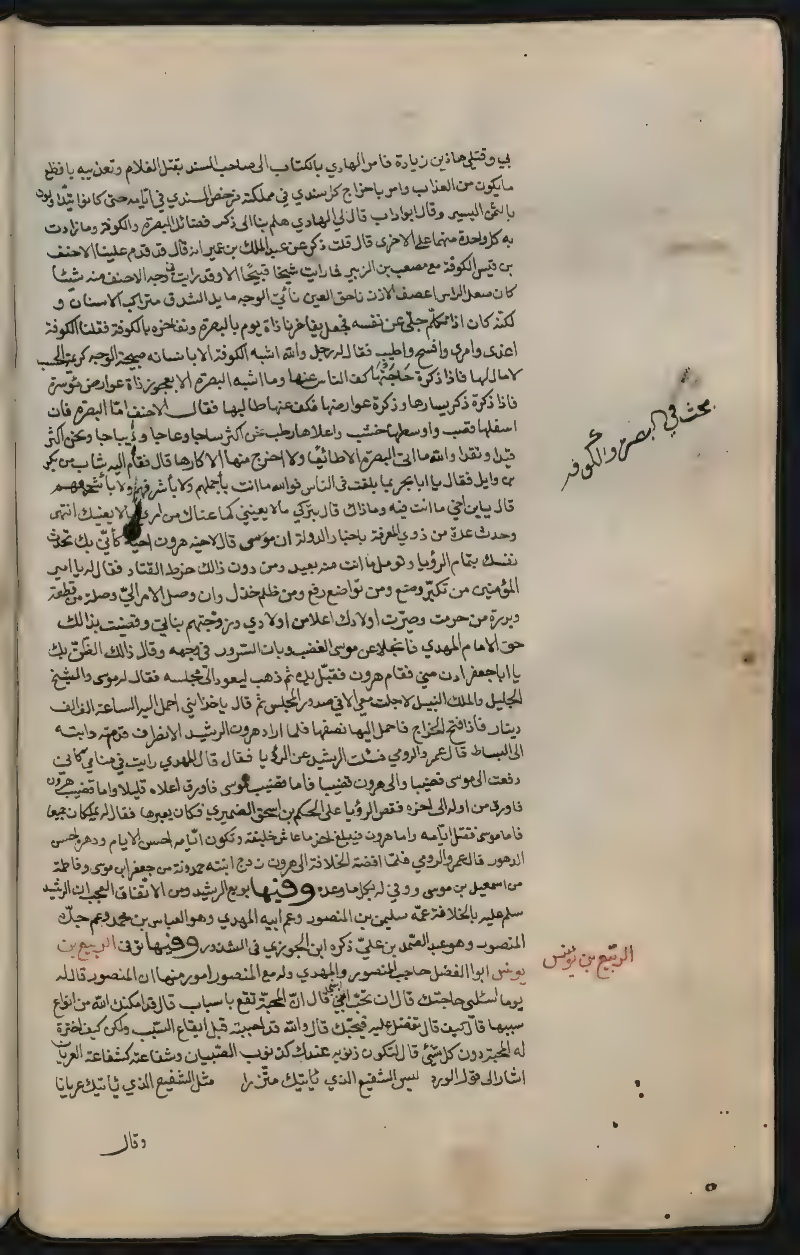 بي وقتلي هاذين زيادة فامر الهادي بالكتاب الى صاحب السند بقتل الغلام وتعذيبه بافظع
ما يكون من العذاب وامر باخراج كل سندي في مملكته فرخص السندي في ايامه حتى كانوا
بالثمن اليسير وقال ابو داب قال لي الهادي هلم بنا الى ذكر فضائل البصرة والكوفة وما زادت
به كل واحدة منهما على الاخرى قال قلت ذكر عن عبد الملك بن عمير انه قال قد قدم علينا الاحنف
بن قيس الكوفة مع مصعب بن الزبير فما رايت شيخا قبيحا الا وقد رايت في وجه الاحنف منه شيئا
كان صعل الراس اعصف الاذن ناحق العين ناتي الوجه مايد الشدق متراكب الاسنان و
لكنه كان اذا تكلم جلى عن نفسه فجعل يفاخرنا ذاة يوم بالبصرة ونفاخره بالكوفة فقلنا الكوفة
اغذى وامرى وافسح واطيب فقال له رجل والله اشبه الكوفة الا بانسانه صبيحة الوجه كريمة الحسب
لا مال لها فاذا ذكرة حاجتها كف الناس عنها وما اشبه البصرة الا بعجوز ذاة عوارض مؤسرة
فاذا ذكرة ذكر يسارها وذكرة عوارضها فكف عنها طالبها فقال الاحنف امّا البصرة فان
اسفلها قصب واوسطها خشب واعلاها رطب نحن اكثر ساجا وعاجا وديباجا ونحن اكثر
قندا ونقدا والله ما اتى البصرة الا طائعا ولا اخرج منها الا كارها قال فقام اليه شاب من بكر
بن وايل فقال يا ابا بحر بما بلغت في الناس فوالله ما انت باجملهم ولا باشرفهم ولا باشجعهم
قال يا بن اخي ما انت فيه وما ذاك قال بتركي ما لا يعنيني كما عناك من امري ما لا يعنيك انتهى
وحدث عدة من ذوي المعرفة باخبار الدولة ان موسى قال لاخيه هرون كأني بك تحدث
نفسك بتمام الرؤيا وتومل ما انت منه بعيد ومن دون ذالك خرط القتاد فقال له يا امير
المؤمنين من تكبّر وضع ومن تواضع رفع ومن ظلم خذل وان وصل الامر اليّ وصلة من قطعة
وبررة من حرمت وصيّرت اولادك اعلا من اولادي وزوجتهم بناتي وقضيت بذالك
حق الامام المهدي فانجلا عن موسى الغضب وبان السّرور في وجهه وقال ذالك الظنّ بك
يا ابا جعفر ادن مني فقام هرون فقبّل يديه ثم ذهب ليعود الى مجلسه فقال له موسى والشيخ
الجليل والملك النبيل لا جلست معي الا في صدور المجلس ثم قال يا خزايني احمل اليه الساعة الف الف
دينار فاذا فتح الخراج فاحمل اليها نصفها فلما اراد هرون الرشيد الانصراف قدّمت دابته
الى البساط قال عمر والرومي فسئلت الرشيد عن الرؤيا فقال قال المهدي رايت في منامي كاني
دفعت الى موسى قضيبا والى هرون قضيبا فاما قضيب موسى فاورق اعلاه قليلا واما قضيب هرون
فاورق من اوله الى اخره فقص الرؤيا على الحكم بن اسحق الضميري فكان يعبرها فقال له يملكان جميعا
فاما موسى فتقل ايامه واما هرون فيبلغ اخر ما عاش خليفة وتكون ايامه احسن الايام ودهره احسن
الدهور قال عمر والرومي فلما افضة الخلافة الى هرون زوج ابنته حمدونة من جعفر ابن موسى وفاطمة
من اسمعيل بن موسى ووفى له بكل ما وعده وفيها بويع الرشيد ومن الاتفاق العجيب ان الرشيد
سلم عليه بالخلافة عمّه سليمن بن المنصور وعم ابيه المهدي وهو العباس بن محمد وعم جدّه
المنصور وهو عبد الصمد بن عليّ ذكره ابن الجوزي في الشذور وفيها توفى الربيع بن
يونس ابوا الفضل حاجب المنصور والمهدي وله مع المنصور امور منها ان المنصور قال له
يوما اسئلني حاجتك قال ان تحب ابني قال انّ المحبّة تقع باسباب قال قد امكنك الله من ايقاع
سببها قال كيف قال تفضل عليه فيحبّك قال والله قد احببته قبل ايقاع السبب ولكن كيف اخترة
له المحبة دون كل شيئ قال لتكون ذنوبه عندك كذنوب الصبيان وشفاعته كشفاعة العريان
اشار الى قول الورد ليس الشفيع الذي ياتيك متّزرا مثل الشفيع الذي ياتيك عريانا
وقال
بحث في البصره والكوفه
الربيع بن يونس